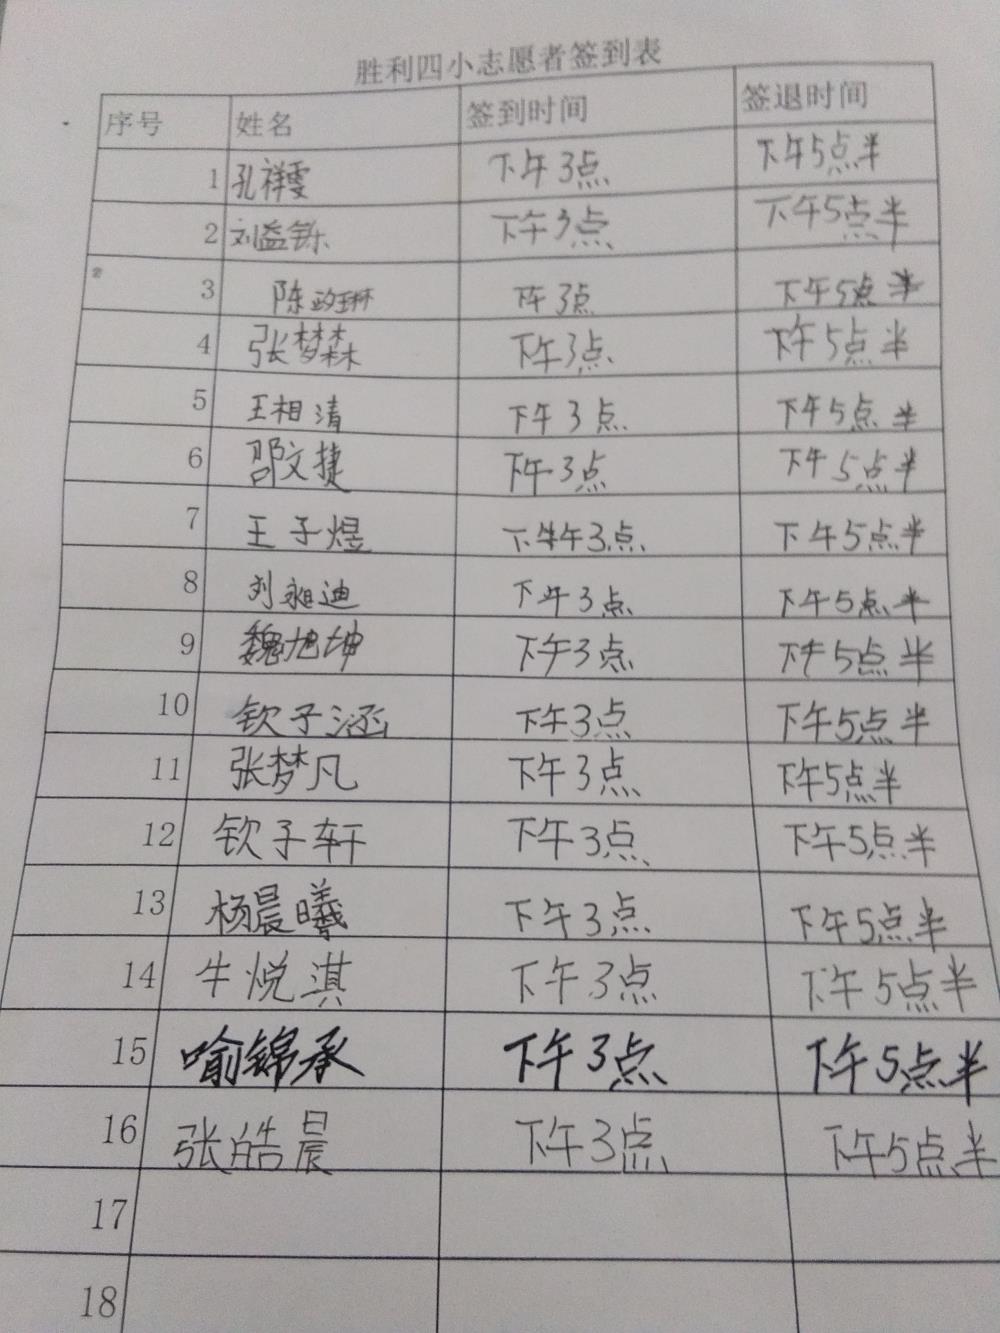 胜利四小志愿者签到表
序号 姓名 签到时间 签退时间
1 孔祥雯 下午3点 下午5点半
2 刘益铄 下午3点 下午5点半
3 陈政琳 下午3点 下午5点半
4 张梦森 下午3点 下午5点半
5 王相清 下午3点 下午5点半
6 邵文捷 下午3点 下午5点半
7 王子煜 下午3点 下午5点半
8 刘昶迪 下午3点 下午5点半
9 魏旭坤 下午3点 下午5点半
10 钦子涵 下午3点 下午5点半
11 张梦凡 下午3点 下午5点半
12 钦子轩 下午3点 下午5点半
13 杨晨曦 下午3点 下午5点半
14 牛悦淇 下午3点 下午5点半
15 喻锦承 下午3点 下午5点半
16 张皓晨 下午3点 下午5点半
17
18